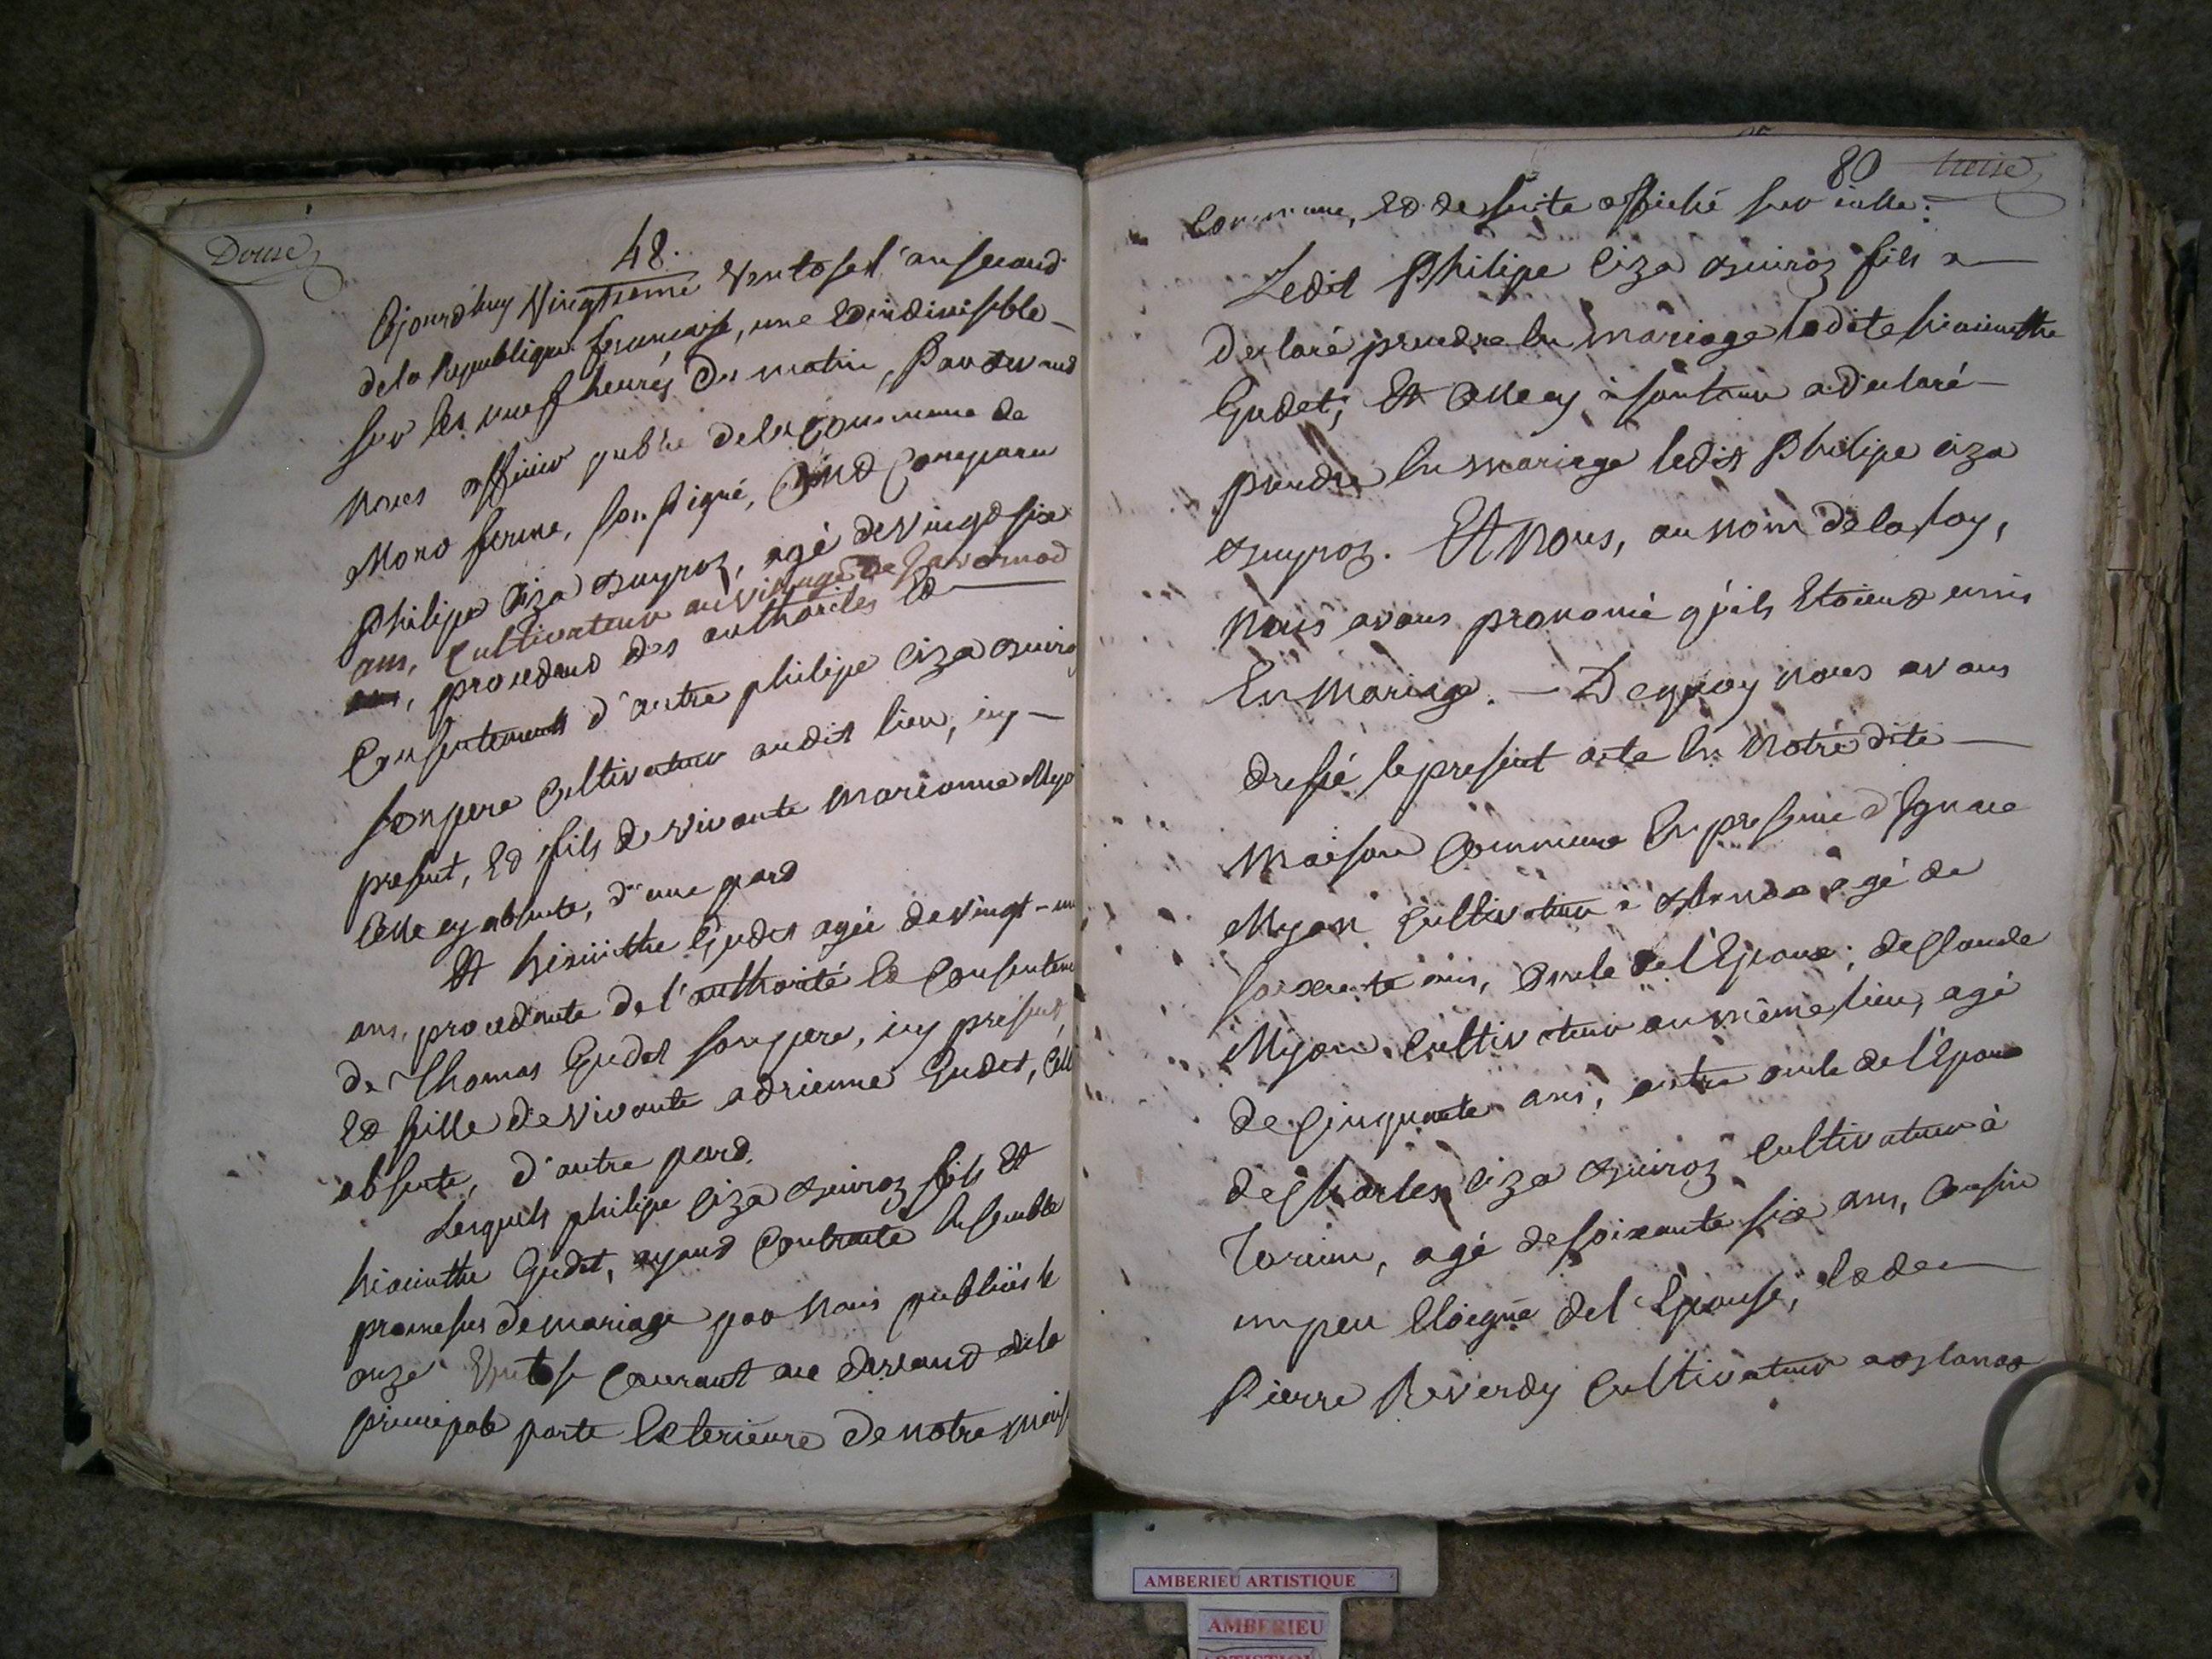 Douze
48.
Cejourd'huy Vingtieme Ventose l'an second
de la Republique francaise, une Et indivisible
sur les neuf heures du matin, Pardevand
Nous officier public de la Commune de
Mono ferme, soussigné, Ond Comparu
Philipe Ciza, agé de Vingd six
ans, Cultivateur au village de
procedand des authorites Ed
Consentements d'autre philipe Ciza
son pere Cultivateur audit lieu, icy
present, Ed fils de vivante Marianne
Celle cy absente, d'une pard
Et hiacinthe Gudet agée de Vingt-un
ans, procedante de l'authorité Ed
de Thomas Gudet son pere, icy present,
Ed fille de vivante adrienne Gudet,
absente, d'autre pard.
Lesquels philipe Ciza fils Et
hiacinthe Gudet, ayand Contracté Ensemble
promesses de mariage par Nous publiées le
onze Ventose Courant au devand de la
principale porte Exterieure de notre
80 treise
Commune, Ed de suite affiché sur icelle:
Ledit Philipe Ciza fils a
declaré prendre En mariage ladite hiacinthe
Gudet, Et Celle cy à son tour a declaré
prendre En mariage ledit Philipe Ciza
Et Nous, au nom de la loy,
Nous avons prononcé qu'ils Etoiend unis
En Mariage. — De quoy nous avons
dressé le present acte En Notre dite
Maison Commune En presence d'Ignace
Myon Cultivateur à agé de
soixante ans, Oncle de l'Epoux; de Claude
Myon Cultivateur au même lieu, agé
de Cinquante ans, autre oncle de l'Epoux
de Charles Ciza Cultivateur à
agé de soixante six ans, Cousin
un peu Eloigné de l'Epouse, Ed de
Pierre Reverdy Cultivateur
AMBERIEU ARTISTIQUE
AMBERIEU
ARTISTIQUE